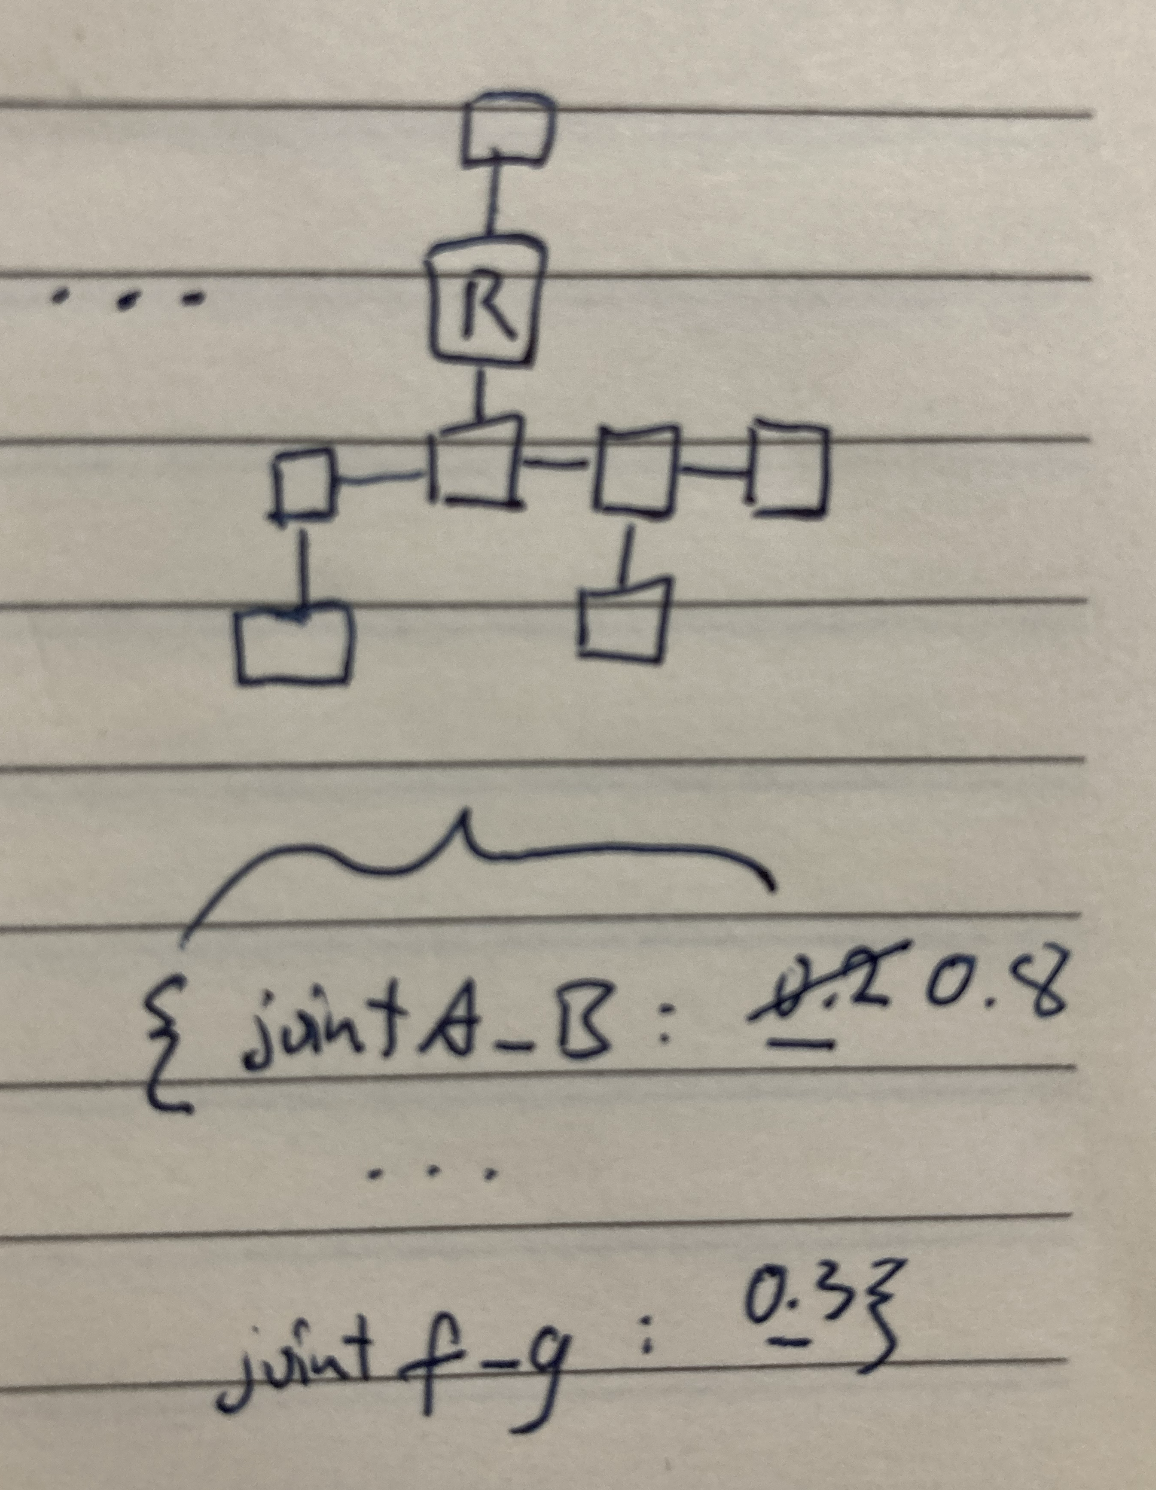 ...
R
{ joint A_B : 0.2 0.8
...
joint f_g : 0.3}